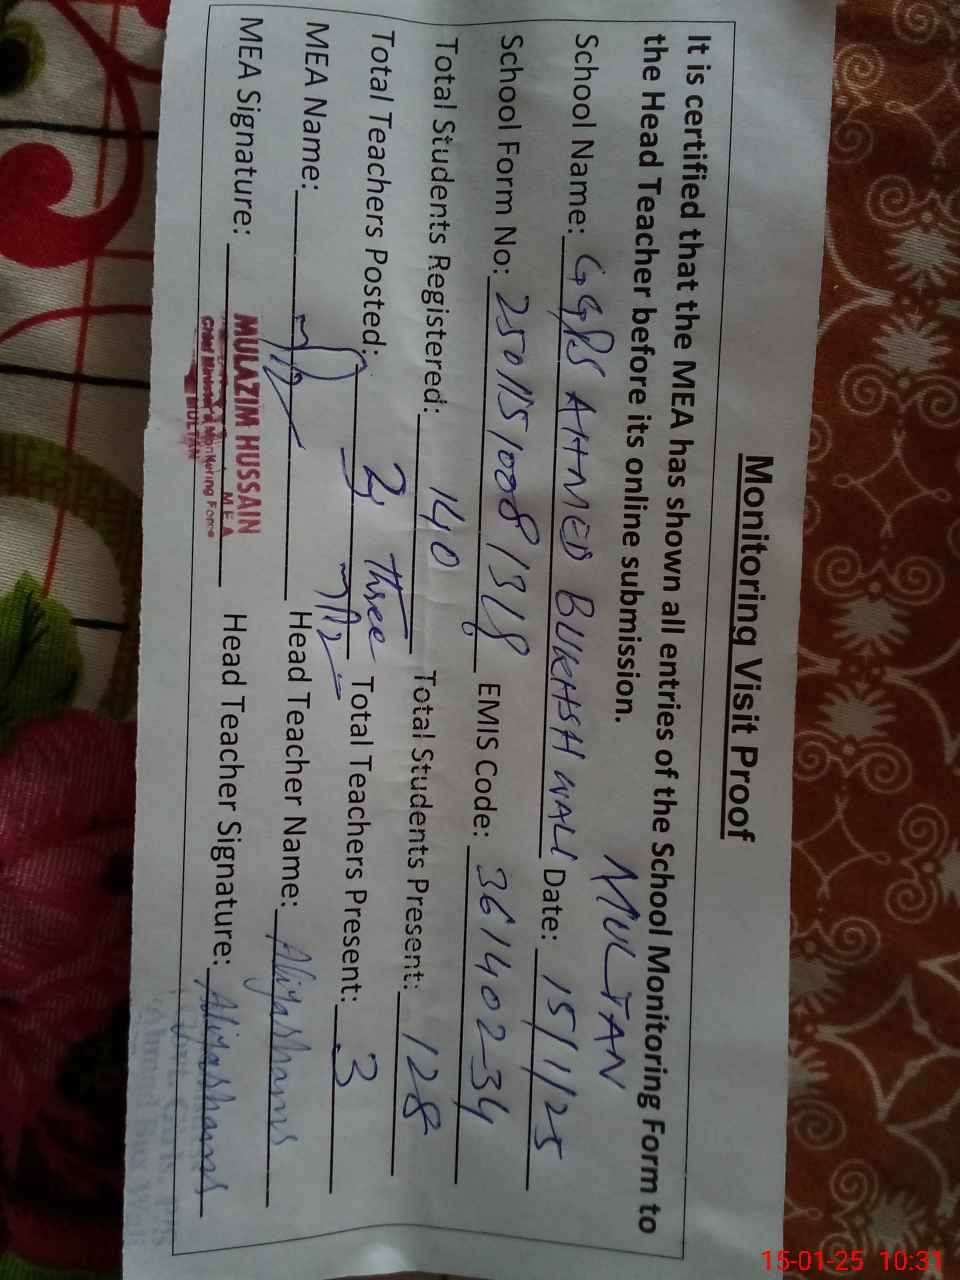 Monitoring Visit Proof
It is certified that the MEA has shown all entries of the School Monitoring Form to
the Head Teacher before its online submission.
MULTAN
School Name: GGPS AHMED BUKHSH WALI Date: 15/1/25
School Form No: EMIS Code: 36140234
Total Students Registered: 140 Total Students Present: 128
Total Teachers Posted: three Total Teachers Present: 3
MEA Name: Head Teacher Name: Aliya Shams
MEA Signature: Head Teacher Signature: Aliya Shams
MULAZIM HUSSAIN
M.E.A
Chief Minister's Monitoring Force
MULTAN
15-01-25 10:31